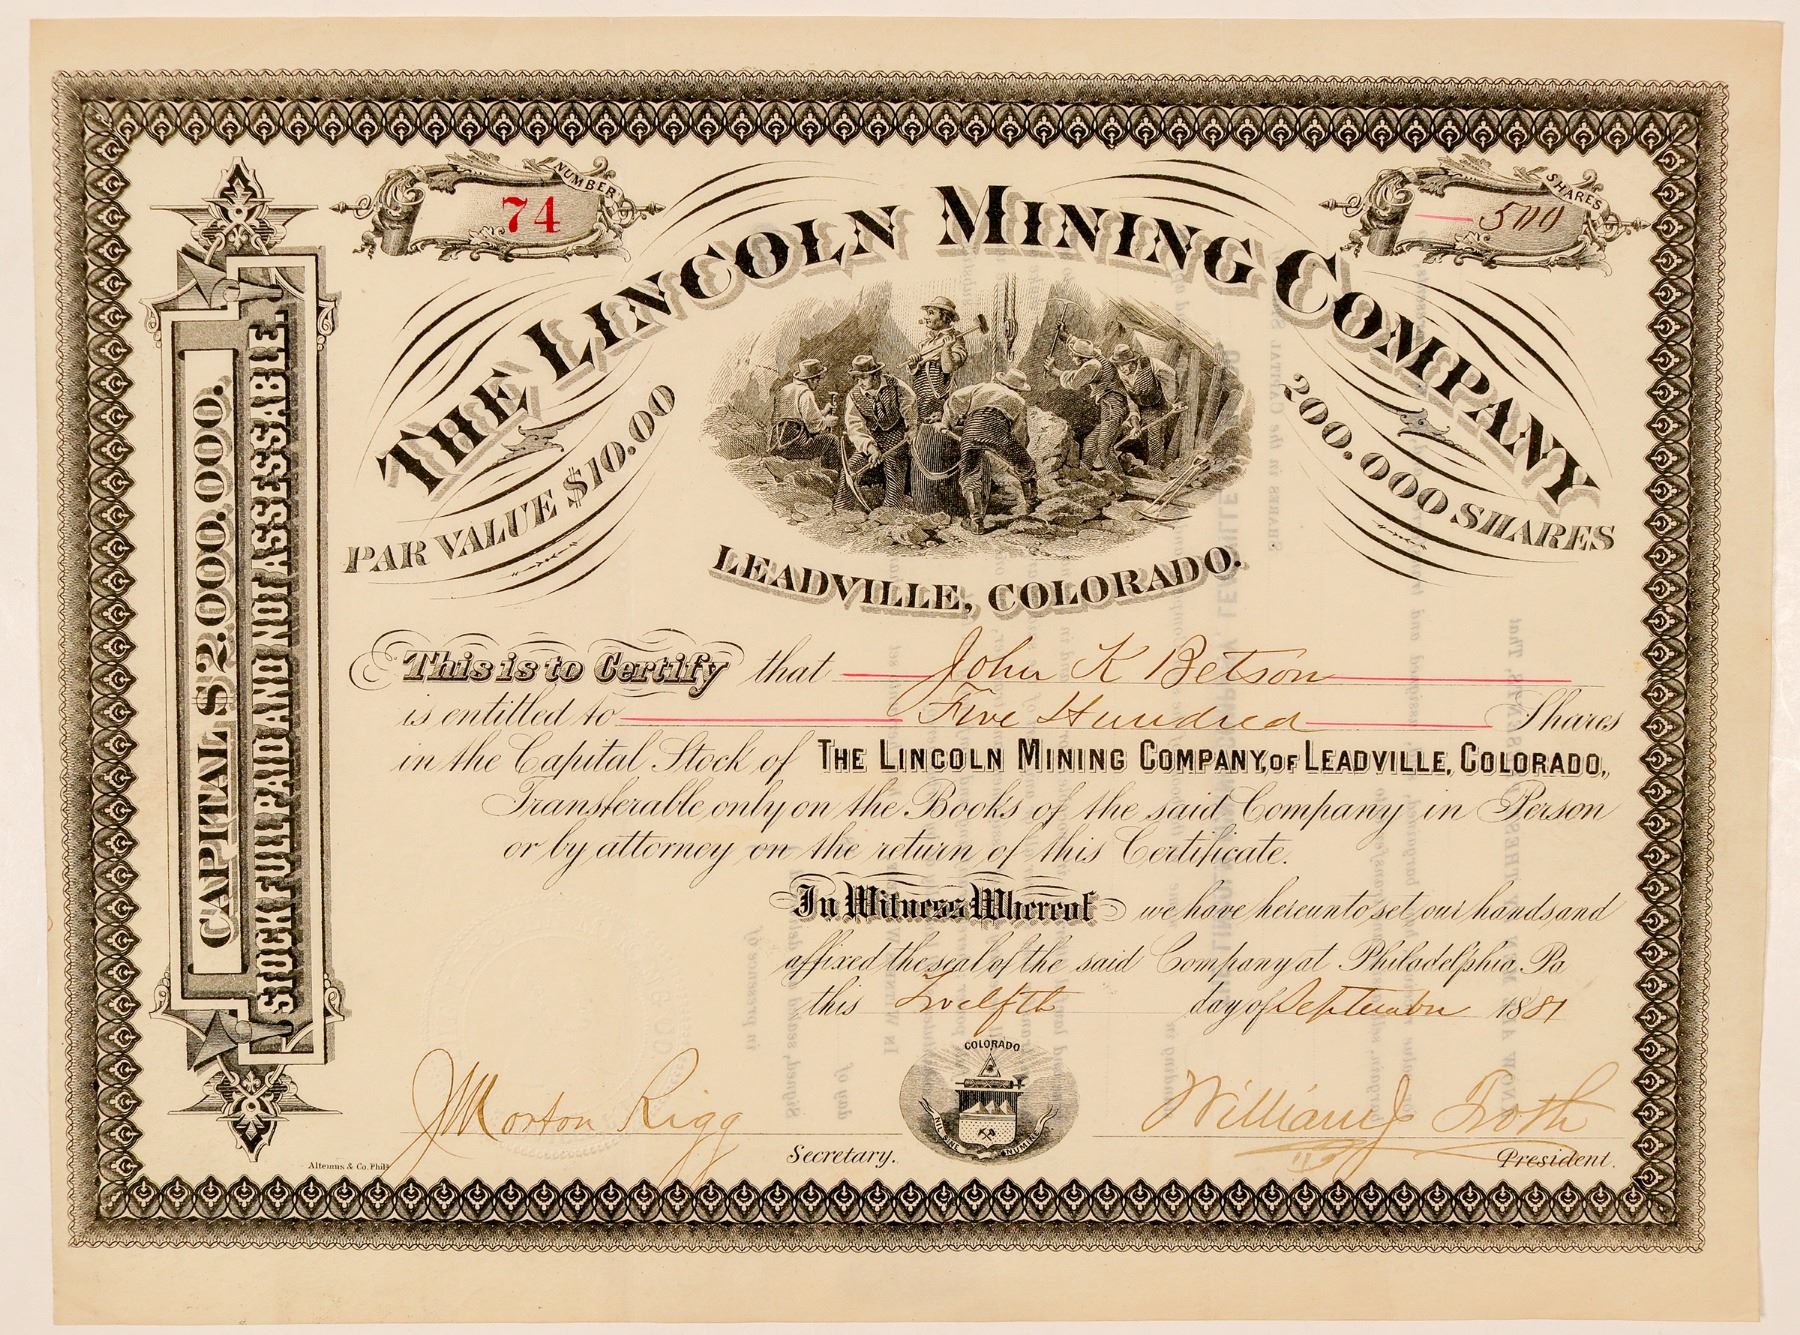 NUMBER
74
SHARES
500
THE LINCOLN MINING COMPANY
PAR VALUE $10.00
200.000 SHARES
LEADVILLE, COLORADO.
CAPITAL $2.000.000.
STOCK FULL PAID AND NOT ASSESSABLE.
This is to Certify that John K Betson
is entitled to Five Hundred Shares
in the Capital Stock of THE LINCOLN MINING COMPANY, OF LEADVILLE, COLORADO,
Transferable only on the Books of the said Company in Person
or by attorney on the return of this Certificate.
In Witness Whereof we have hereunto set our hands and
affixed the seal of the said Company at Philadelphia Pa
this Twelfth day of September 1881
COLORADO
NIL SINE NUMINE
J Morton Rigg
Secretary.
William J Troth
President.
Altemus & Co. Phil